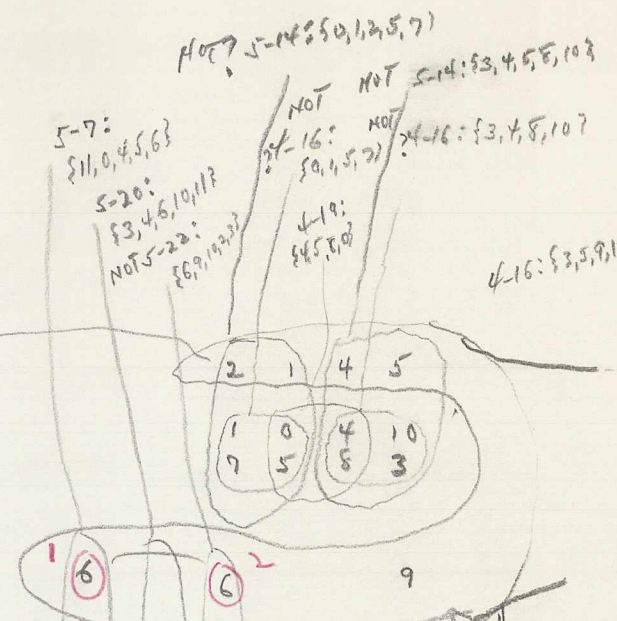 NOT? 5-14: {0,1,2,5,7}
NOT 5-14: {3,4,5,8,10}
NOT ?4-16: {0,1,5,7}
NOT ?4-16: {3,4,8,10}
5-7:
{11,0,4,5,6}
5-20:
{3,4,6,10,11}
NOT 5-22:
{6,9,10,2,3}
4-19:
{4,5,8,0}
4-16: {3,5,9,1
2 1 4 5
1 0 4 10
7 5 8 3
1 6 6 2 9